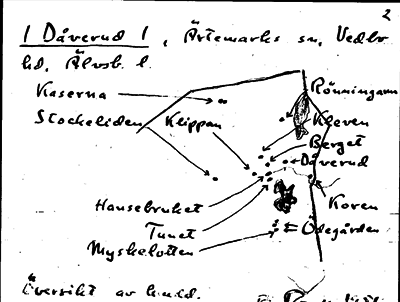 2
1 Dåverud 1, Ärtemarks sn, Vedbo
hd, Älvsb. l.
Kaserna
Rönningarna
Stockeliden
Klippan
Kleven
Berget
Dåverud
Hansebruket
Koren
Tunet
Ödegården
Myskelotten
Översikt av